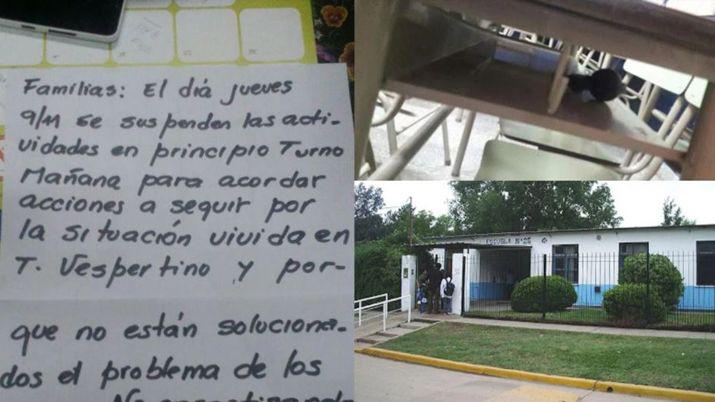 Familias: El día jueves
9/11 se suspenden las acti-
vidades en principio Turno
Mañana para acordar
acciones a seguir por
la situación vivida en
T. Vespertino y por-
que no están soluciona-
dos el problema de los
ESCUELA Nº 25